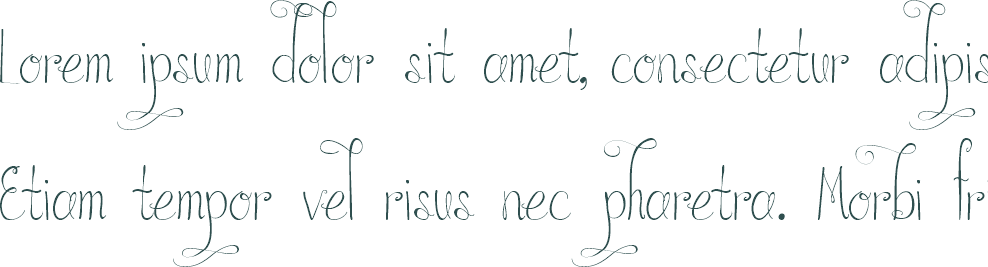 Lorem ipsum dolor sit amet, consectetur adipis
Etiam tempor vel risus nec pharetra. Morbi fr